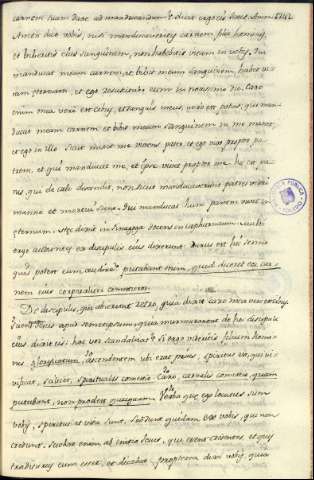 carnem suam dare ad manducandum? dicit ergo eis Iesus. Amen
Amen dico vobis, nisi manducaveritis carnem filii hominis,
et biberitis eius sanguinem, non habebitis vitam in vobis. Qui
manducat meam carnem, et bibit meum sanguinem, habet vi
tam eternam, et ego resuscitabo eum in novissimo die. Caro
enim mea vere est cibus, et sanguis meus vere est potus, qui man
ducat meam carnem et bibit meum sanguinem in me manet,
et ego in illo. Sicut misit me vivens pater, et ego vivo propter pa
trem, et qui manducat me, et ipse vivet propter me. hic est pa
nis, qui de celo descendit, non sicut manducaverunt patres vestri
manna et mortui sunt. Qui manducat hunc panem vivet in
eternum. Hec dixit in sinagoga docens in Capharnaum. Multi
ergo audientes ex discipulis eius dixerunt. Durus est hic sermo
quis potest eum audire? putabant enim, quod diceret eis car
nem eius
De discipulis, qui abierunt retro, quia dixit caro mea vere est cibus
Sciens Iesus apud semetipsum quia murmurarent de hoc discipuli
eius dixit eis: hoc vos scandalizat? Si ergo videritis filium homi
nis ascendentem ubi erat prius, spiritus est, qui vi
vificat, spiritualis comestio Caro, carnalis comestio, quam
putabant, non prodest quicquam Verba que ego locutus sum
vobis, spiritus et vita sunt, Sed sunt quidam ex vobis, qui non
credunt. Sciebat enim ab initio Iesus, qui essent credentes et quis
traditurus eum esset, et dicebat. propterea dixi vobis, quia